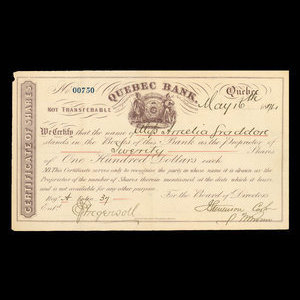 No 00750
QUEBEC BANK.
Quebec
May 16th
NOT TRANSFERABLE
CERTIFICATE OF SHARES
We Certify that the name of Miss Amelia
stands in the Books of this Bank as the Proprietor of
Twenty Shares
of One Hundred Dollars each
N.B. This Certificate serves only to recognize the party in whose name it is drawn as the
Proprietor of the number of Shares therein mentioned at the date which it bears,
and is not available for any other purpose.
For the Board of Directors
Regr. A folio 37
Entd.